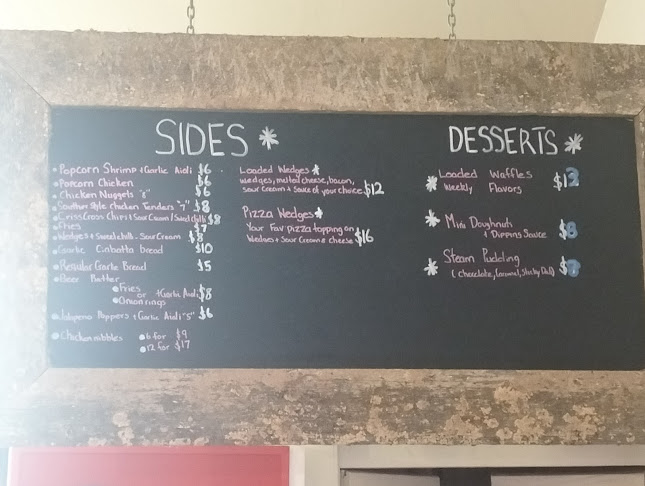 SIDES *
• Popcorn Shrimp + Garlic Aioli $6
• Popcorn Chicken $6
• Chicken Nuggets $6
• Southern Style Chicken Tenders $8
• Criss Cross Chips + Sour Cream / Sweet chilli $8
• Fries $7
• Wedges + Sweet chilli - Sour Cream $8
• Garlic Ciabatta bread $10
• Regular Garlic Bread $5
• Beer Batter
• Fries
or + Garlic Aioli $8
• Onion rings
• Jalapeno Poppers + Garlic Aioli "5" $6
• Chicken nibbles • 6 for $9
• 12 for $17
Loaded Wedges *
wedges, melted cheese, bacon,
Sour Cream + Sauce of your choice $12
Pizza Wedges *
Your Fav pizza topping on
Wedges + Sour Cream & cheese $16
DESSERTS *
* Loaded Waffles
Weekly Flavors $13
* Mini Doughnuts
+ Dipping Sauce $8
* Steam Pudding
(chocolate, Caramel, Sticky Date) $7